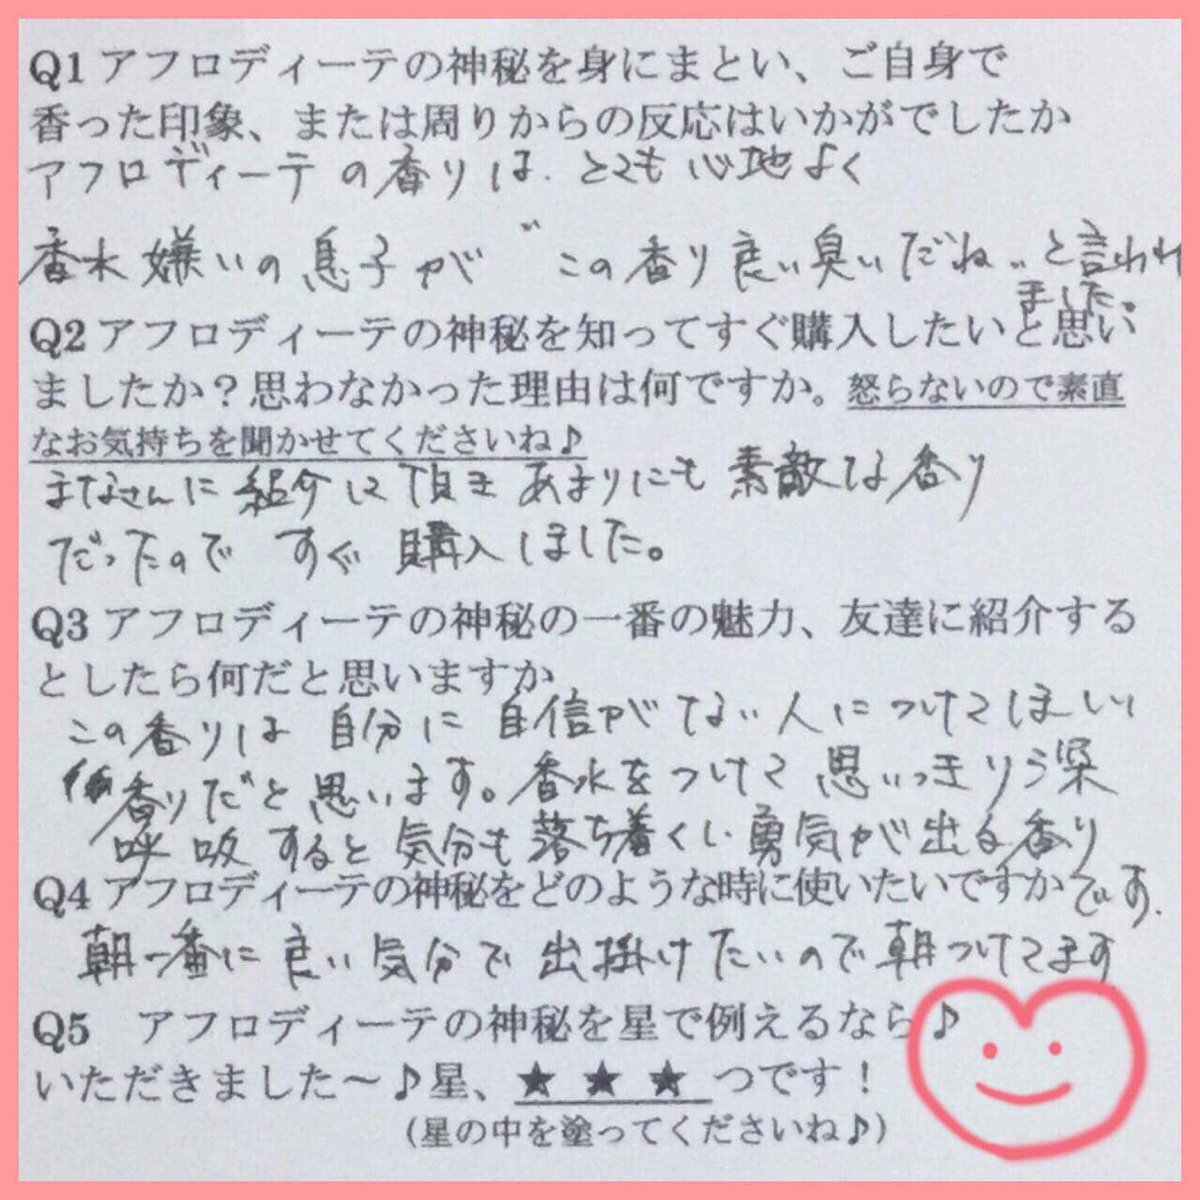 Q1 アフロディーテの神秘を身にまとい、ご自身で
香った印象、または周りからの反応はいかがでしたか
アフロディーテの香りは、とても心地よく
香水嫌いの息子が〝この香り良い臭いだね〟と言われ
ました。
Q2 アフロディーテの神秘を知ってすぐ購入したいと思い
ましたか？思わなかった理由は何ですか。怒らないので素直
なお気持ちを聞かせてくださいね♪
まなさんに紹介して頂き あまりにも素敵な香り
だったので すぐ購入しました。
Q3 アフロディーテの神秘の一番の魅力、友達に紹介する
としたら何だと思いますか
この香りは自分に自信がない人につけてほしい
香りだと思います。香水をつけて思いっきり深
呼吸すると気分も落ち着くし勇気が出る香り
です。
Q4 アフロディーテの神秘をどのような時に使いたいですか
朝一番に良い気分で出掛けたいので朝つけてます
Q5 アフロディーテの神秘を星で例えるなら♪
いただきました～♪星、★ ★ ★ つです！
(星の中を塗ってくださいね♪)